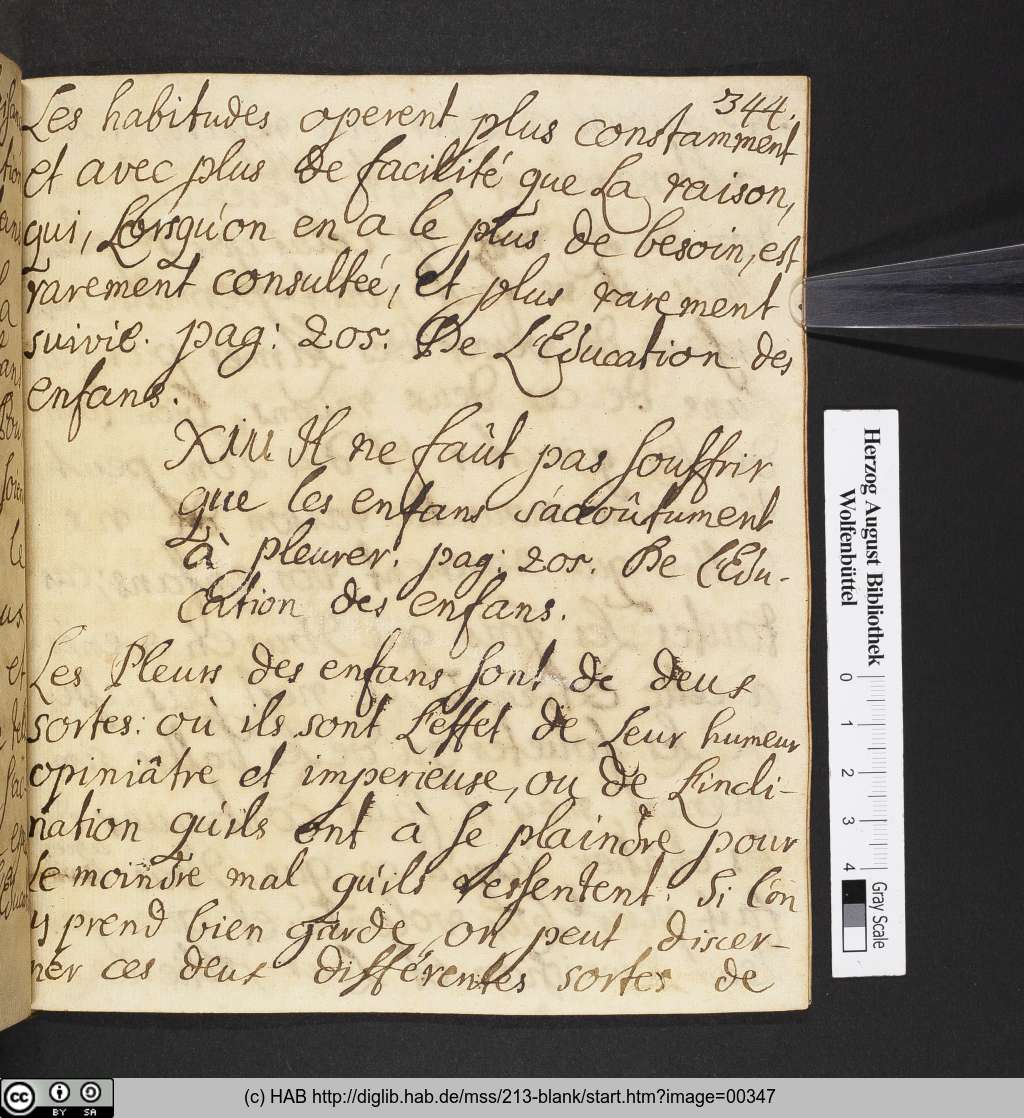 344.
Les habitudes operent plus constamment
et avec plus de facilité que La raison,
qui, Lorsqu'on en a le plus de besoin, est
rarement consultée, et plus rarement
suivie. pag: 205. De L'Education des
enfans.
XIII Il ne faût pas souffrir
que les enfans s'accoûtument
à pleurer. pag: 205. De l'Edu-
cation des enfans.
Les Pleurs des enfans sont de deux
sortes: où ils sont L'effet de Leur humeur
opiniâtre et imperieuse, ou de L'incli-
nation qu'ils ont à se plaindre pour
Le moindre mal qu'ils ressentent. Si l'on
y prend bien garde, on peut discer-
ner ces deux différentes sortes de
Herzog August Bibliothek
Wolfenbüttel
0 1 2 3 4
Gray Scale
cc BY SA
(c) HAB http://diglib.hab.de/mss/213-blank/start.htm?image=00347